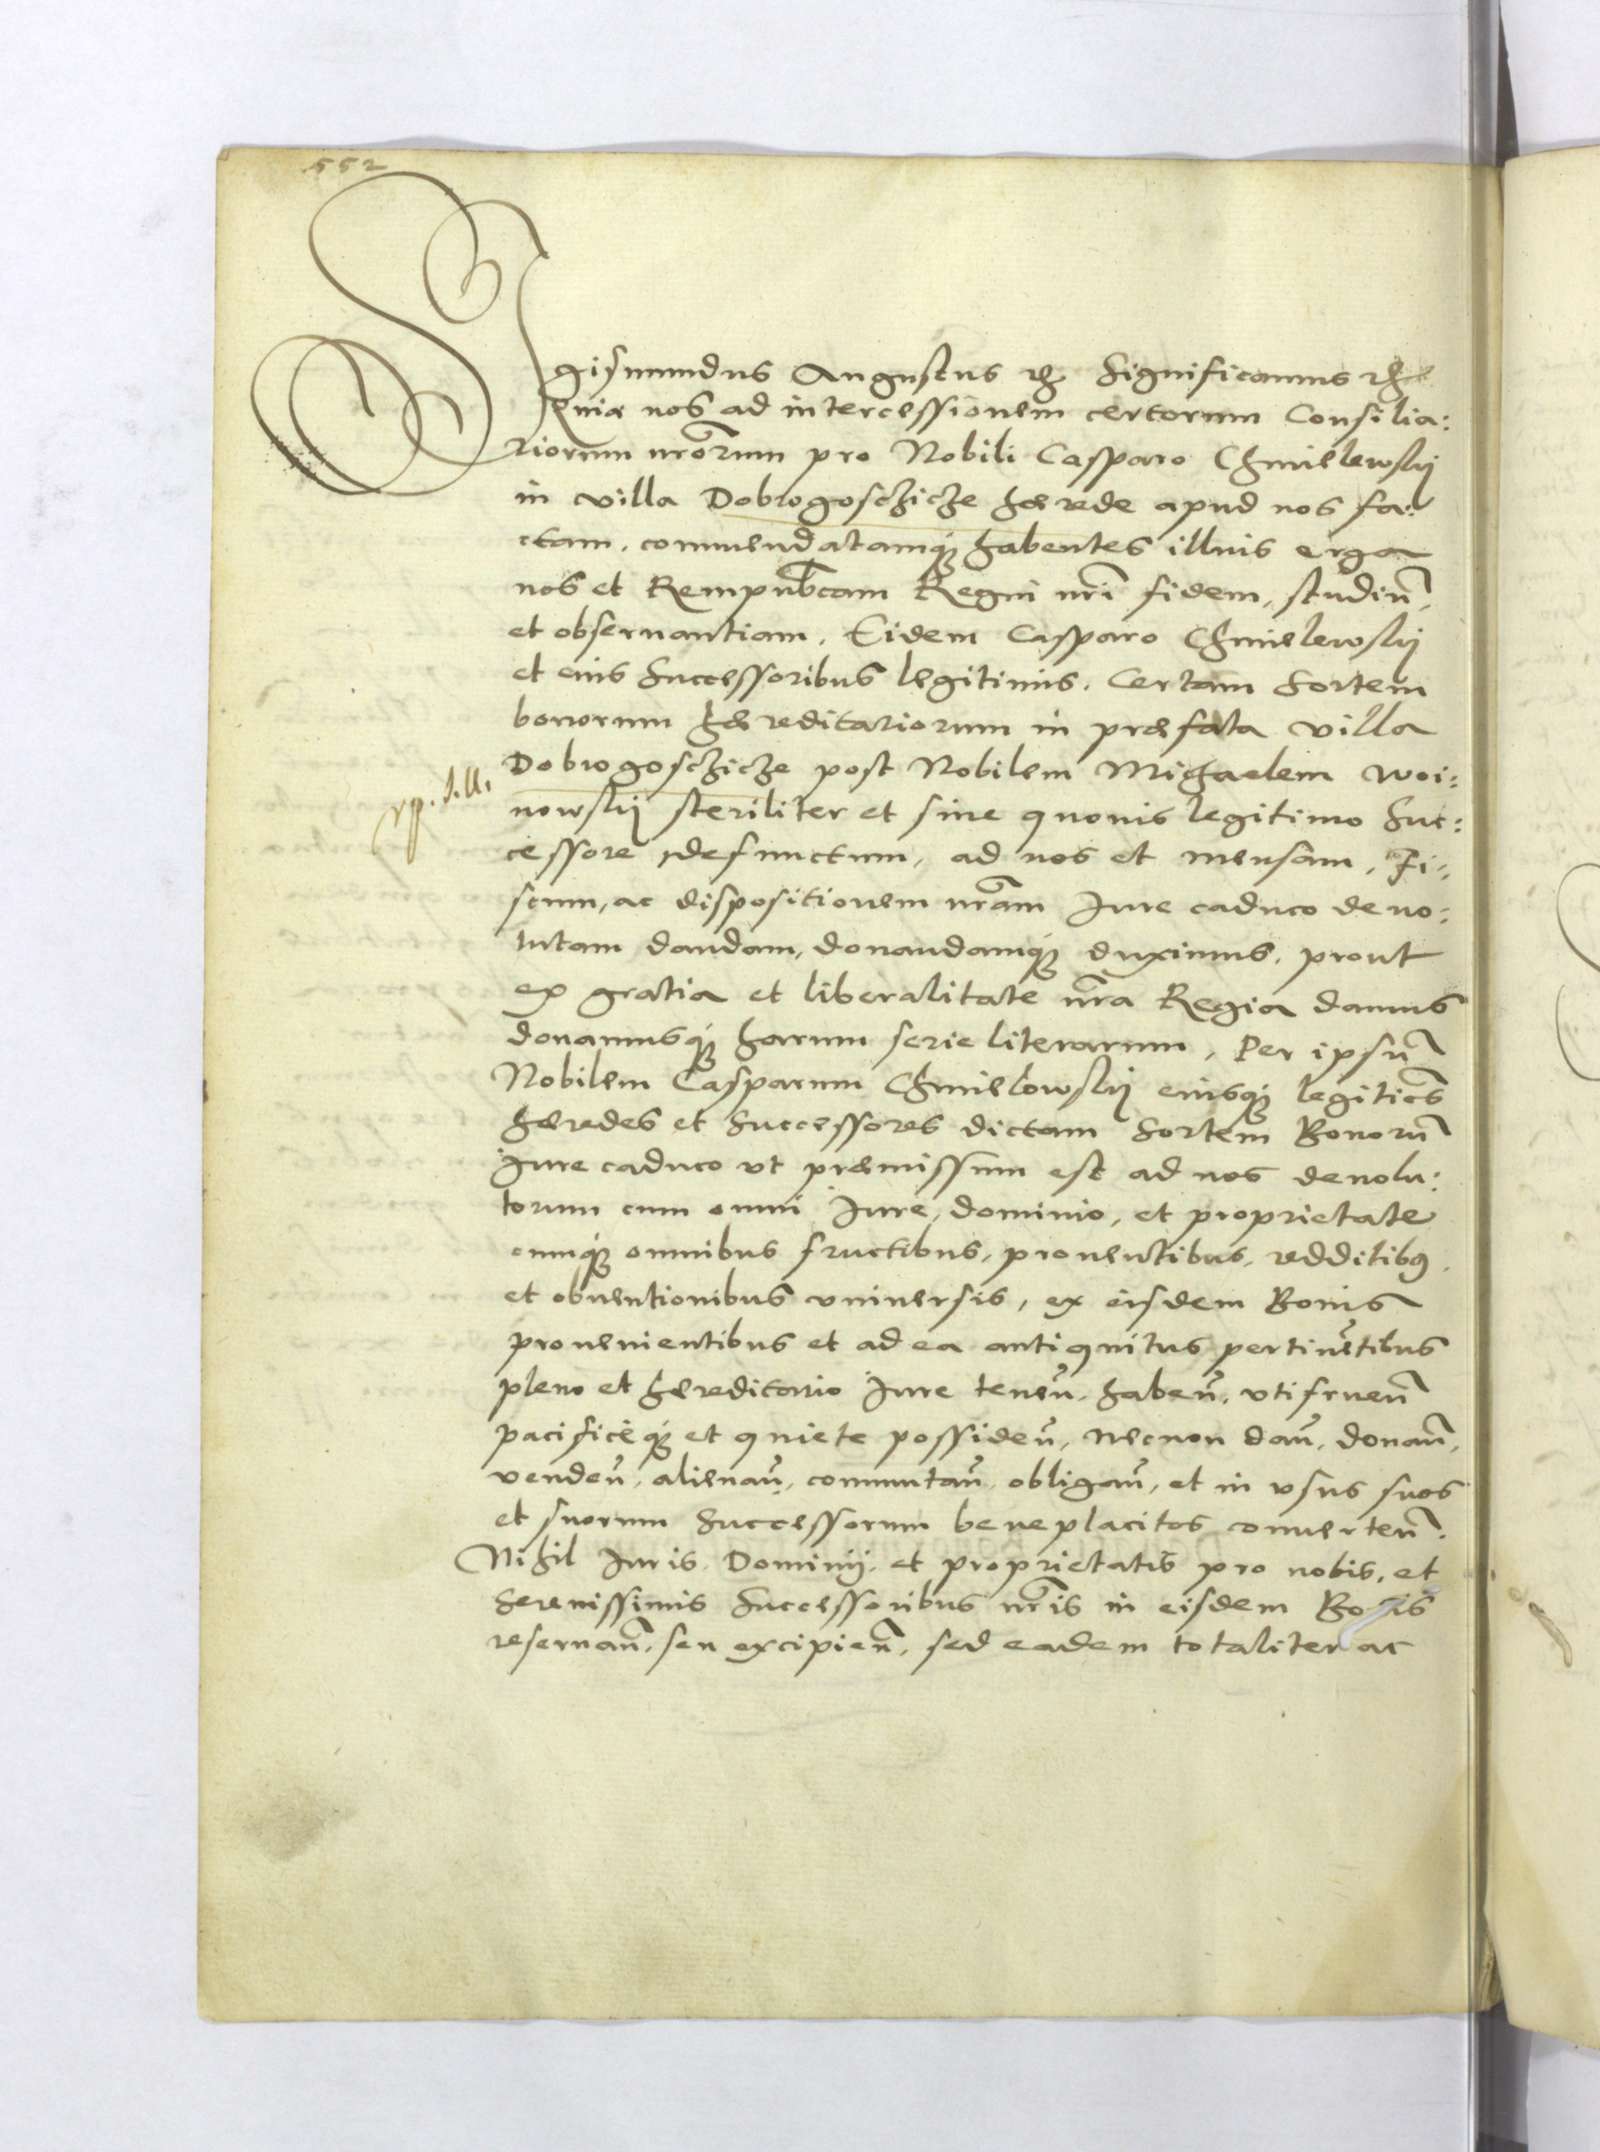 552
Sigismundus Augustus etc Significamus etc
Quia nos ad intercessionem certorum Consilia:
riorum nrorum pro Nobili Casparo Chmielewskÿ
in villa Dobrogoschicze hærede apud nos fa:
ctam, commendatamq habentes illius erga
nos et Rempubcam Regni nri fidem, studiu,
et obseruantiam, Eidem Casparo Chmielewskÿ
et eius Successoribus legitimis, Certam Sortem
bonorum hæreditariorum in præfata villa
Dobrogoschicze post Nobilem Michaelem Woi:
nowskÿ steriliter et sine quouis legitimo Suc:
cessore defunctum, ad nos et mensam, Fi:
scum, ac dispositionem nram Iure caduco deuo:
lutam dandam, donandamq duximus, prout
ex gratia et liberalitate nra Regia damus
donamusq harum serie literarum, Per ipsu
Nobilem Casparum Chmielowskÿ eiusq legitios
hæredes et Successores dictam Sortem Bonoru
Iure caduco vt præmissum est ad nos deuolu:
torum cum omni Iure, dominio, et proprietate
cumq omnibus fructibus, prouentibus, redditibus,
et obuentionibus vniuersis, ex eisdem Bonis
prouenientibus et ad ea antiquitus pertinetibus
pleno et hæreditario Iure tenen, haben, vtifruen
pacificeq et quiete possiden, necnon dan, donan,
venden, alienan, commutan, obligan, et in vsus suos
et suorum Successorum beneplacitos conuerten.
Nihil Iuris, Dominij, et proprietatis pro nobis, et
Serenissimis Successoribus nris in eisdem Bonis
reseruan, seu excipien, sed eadem totaliter ac